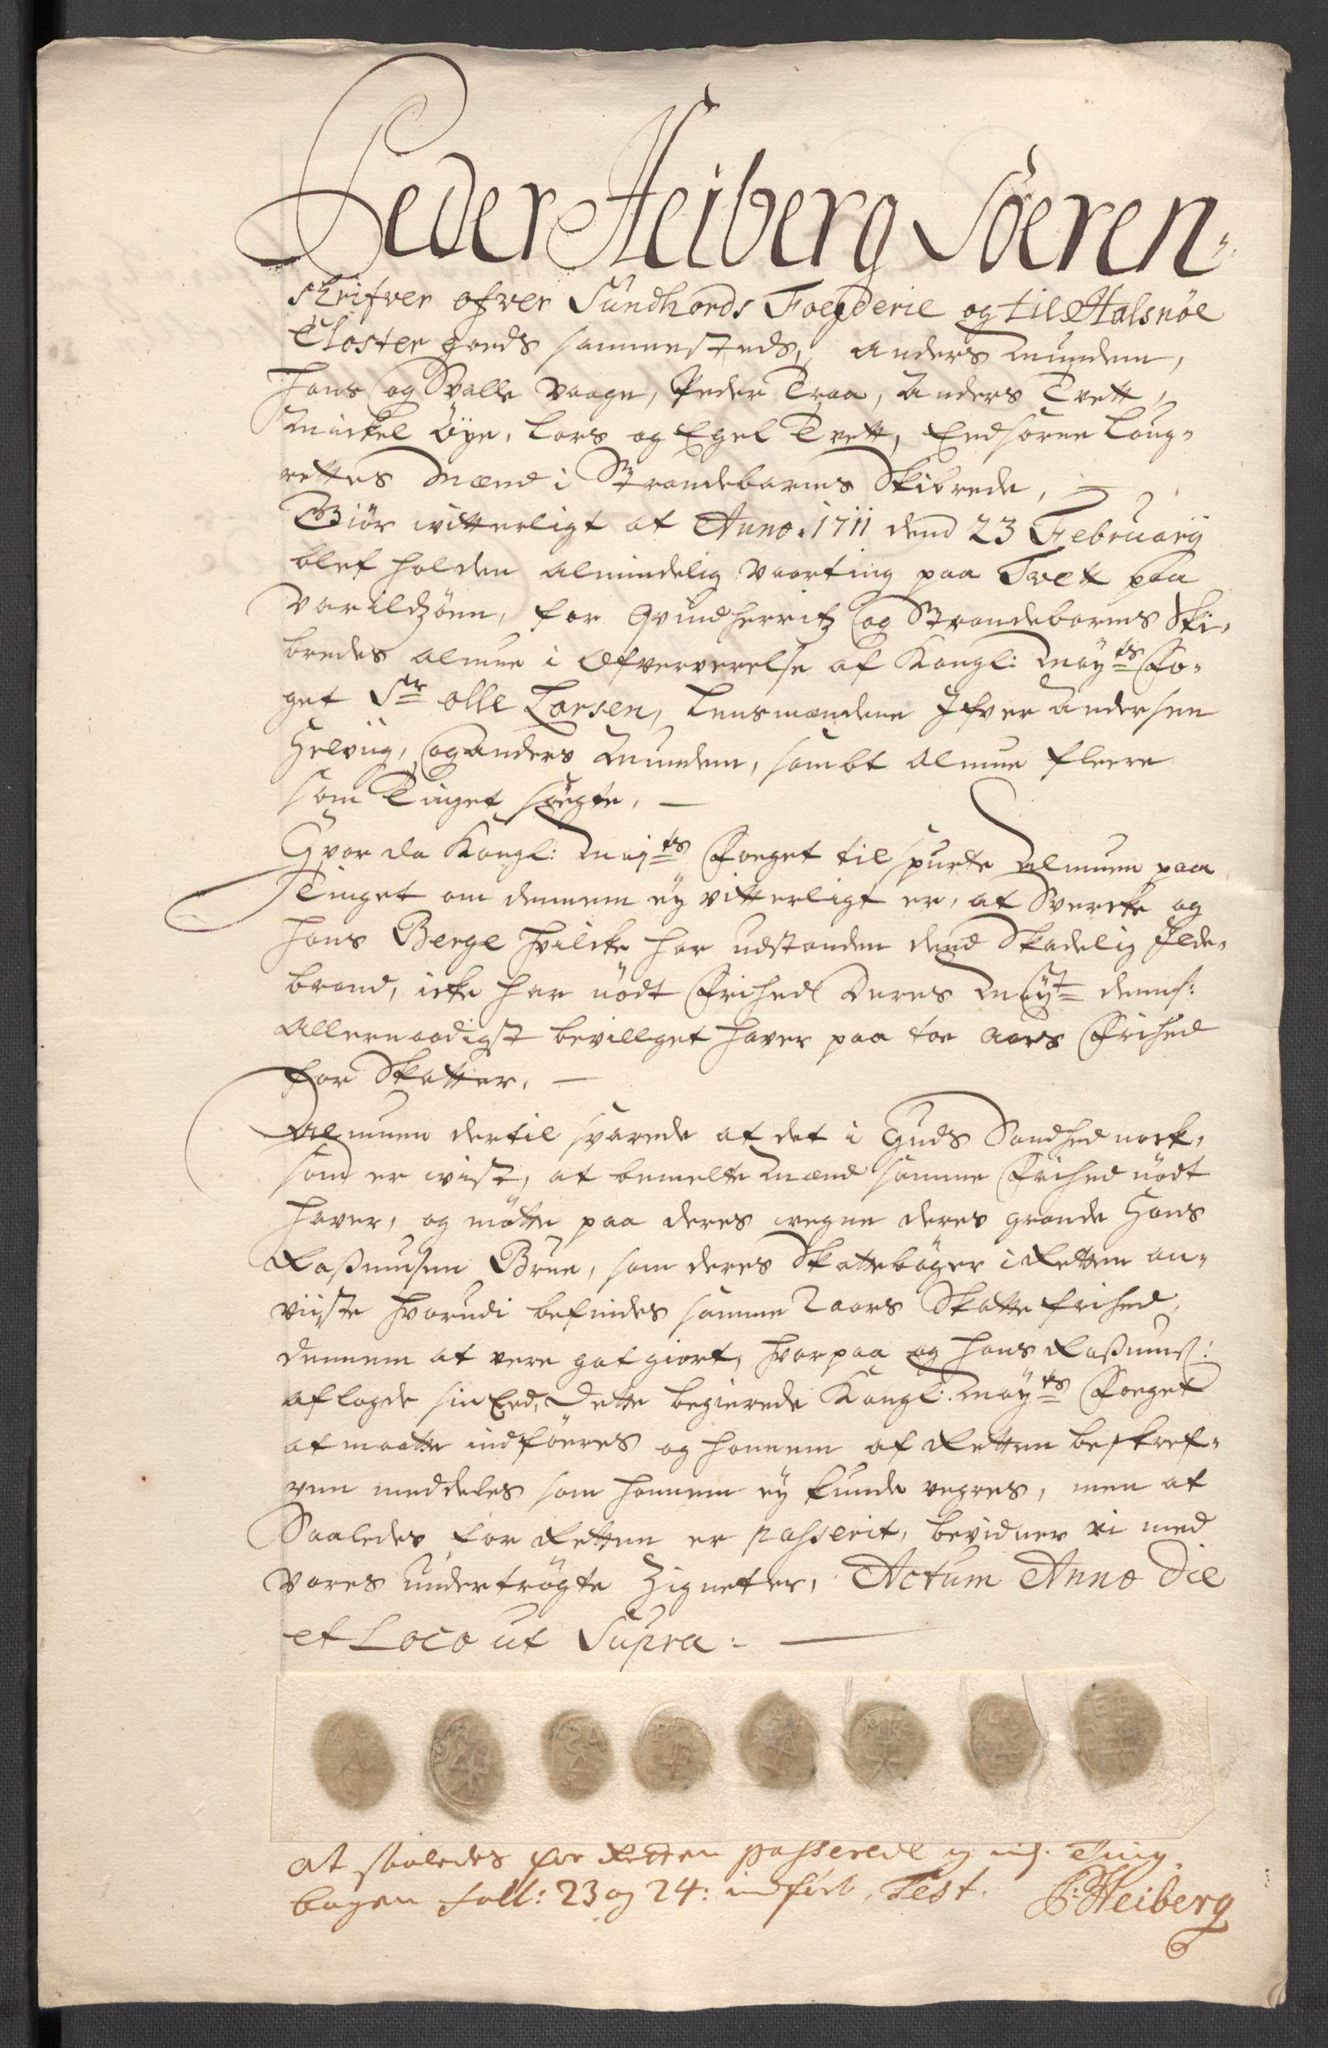 Peder Heiberg Soeren-
skrifver ofver Sundhords Fogderie og til Halsnøe
Closter gouds sammesteds, Anders Mundem,
Hans og Svalle Waage, Peder Traa, Anders Tvett,
Mickel Øye, Lars og Egel Tvett, Eedsorne Laug-
rettes Mænd i Strandebarms Skibrede,
Giør witterligt at Anno 1711 dend 23 Februarij
blef holden almindelig Vaarting paa Tvett paa
Varildzøen, for Qvindherritz og Strandebarms Ski-
bredes almue i Ofververelse af Kongl: Mayts Fo-
get Sr Olle Larsen, Lensmændene Ifver Andersen
Helviig, og Anders Mundem, sambt almue fleere
som Tinget søgte,
Hvor da Kongl: Mayts Foeget tilspurte Almuen paa
Tinget om dennem ey vitterligt er, at Sverche og
Hans Berge hvilcke har udstanden dend Skadelig Ilde-
brand, icke har nödt Frihed Deres Mayt dennem
Allernaadigst bevillget haver paa toe Aars Frihed
for Skatter.
Almuen dertil svarede at det i Guds Sandhed nock-
som er wist, at bemelte Mænd samme Frihed nödt
hafver, og mötte paa deres vegne deres grande Hans
Rasmusen Brue, som deres Skattebøger i Retten an-
viiste hvorudi befindes samme 2 aars Skatte frihed
dennem at vere gotgiort, hvorpaa og Hans Rasmus:
aflagde sin Eed, Dette begierede Kongl. Mayts Foeget
at maatte indføeres og hannem af Retten beskref-
ven meddeles som hannem ey kunde vegres, men at
Saaledes for Retten er passerit, bevidner vi med
vores undertrögte Zigneter, Actum Anno Die
et Loco ut Supra:
At saaledes for Retten passerede og udj Ting
bogen foll: 23 og 24: indført, Test. P: Heiberg